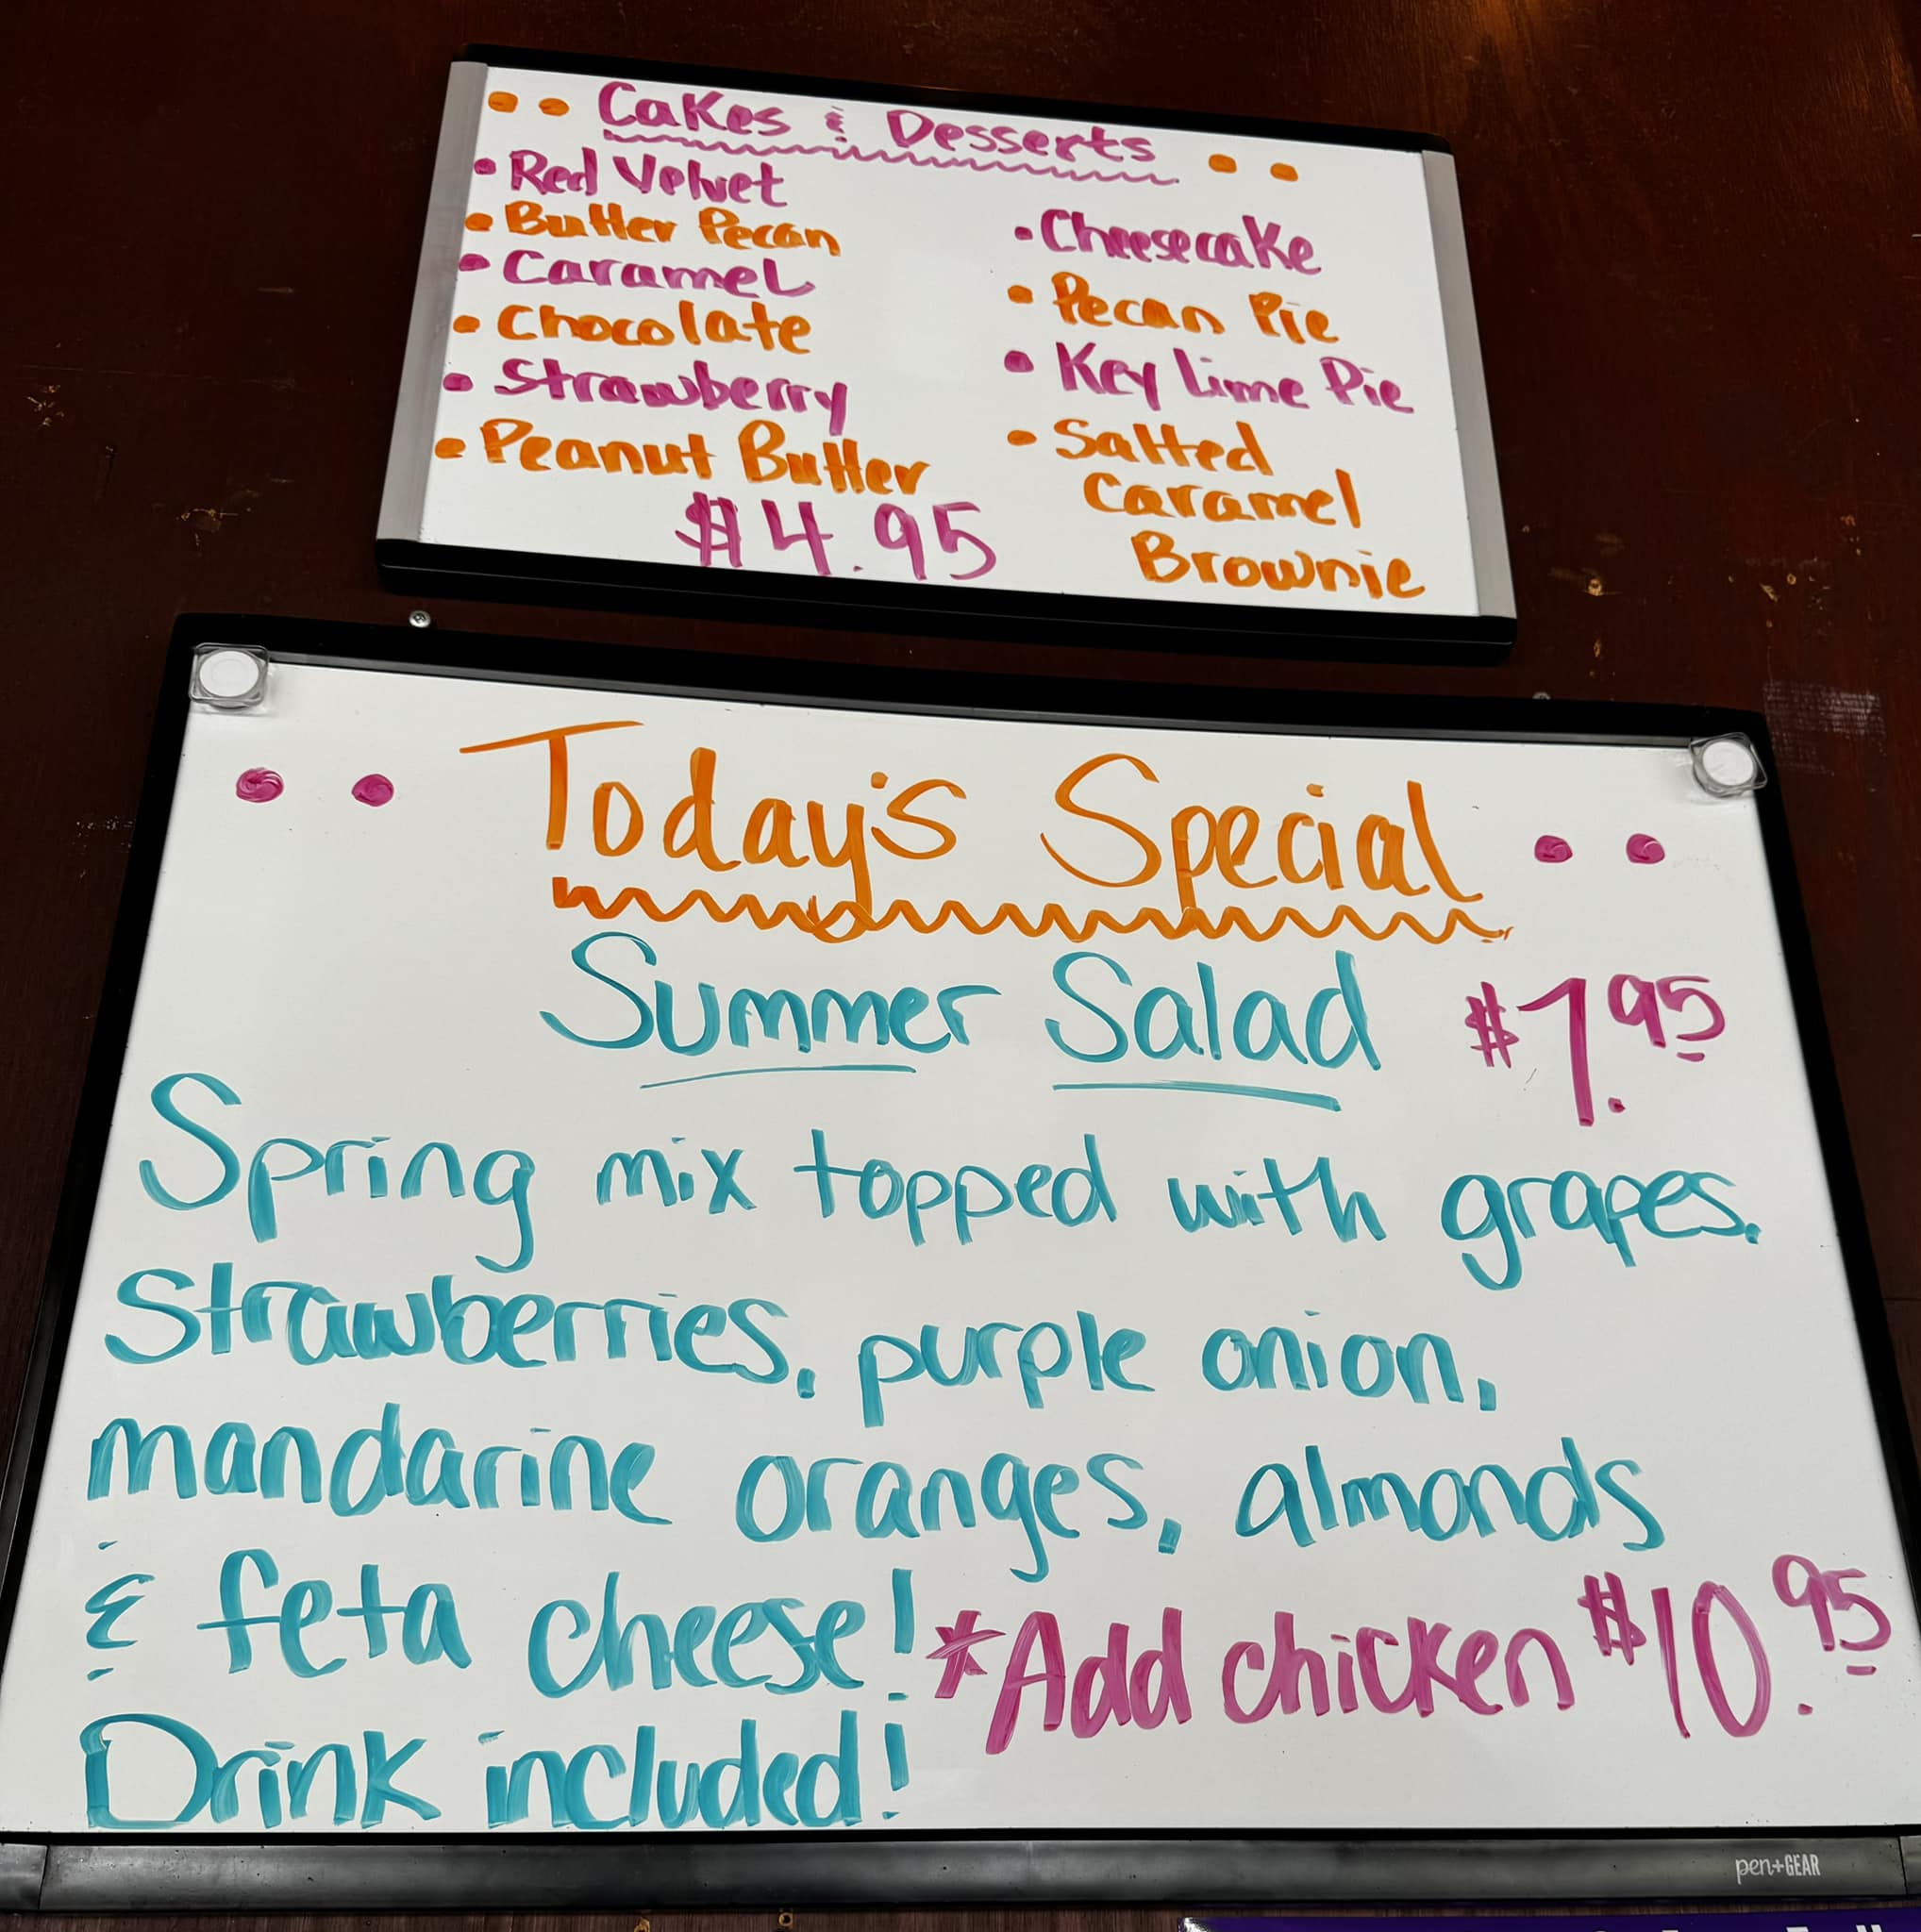 Cakes & Desserts
• Red Velvet
• Butter Pecan
• Caramel
• Chocolate
• Strawberry
• Peanut Butter
$4.95
• Cheesecake
• Pecan Pie
• Key Lime Pie
• Salted
Caramel
Brownie
Today's Special
Summer Salad $7.95
Spring mix topped with grapes,
Strawberries, purple onion,
mandarine oranges, almonds
& feta cheese! *Add chicken $10.95
Drink included!
pen+GEAR